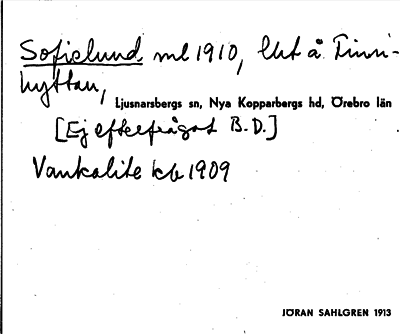 Sofielund ml 1910, lht å Finn-
hyttan,
Ljusnarsbergs sn, Nya Kopparbergs hd, Örebro län
[Ej efterfrågat B.D.]
kb 1909
JÖRAN SAHLGREN 1913